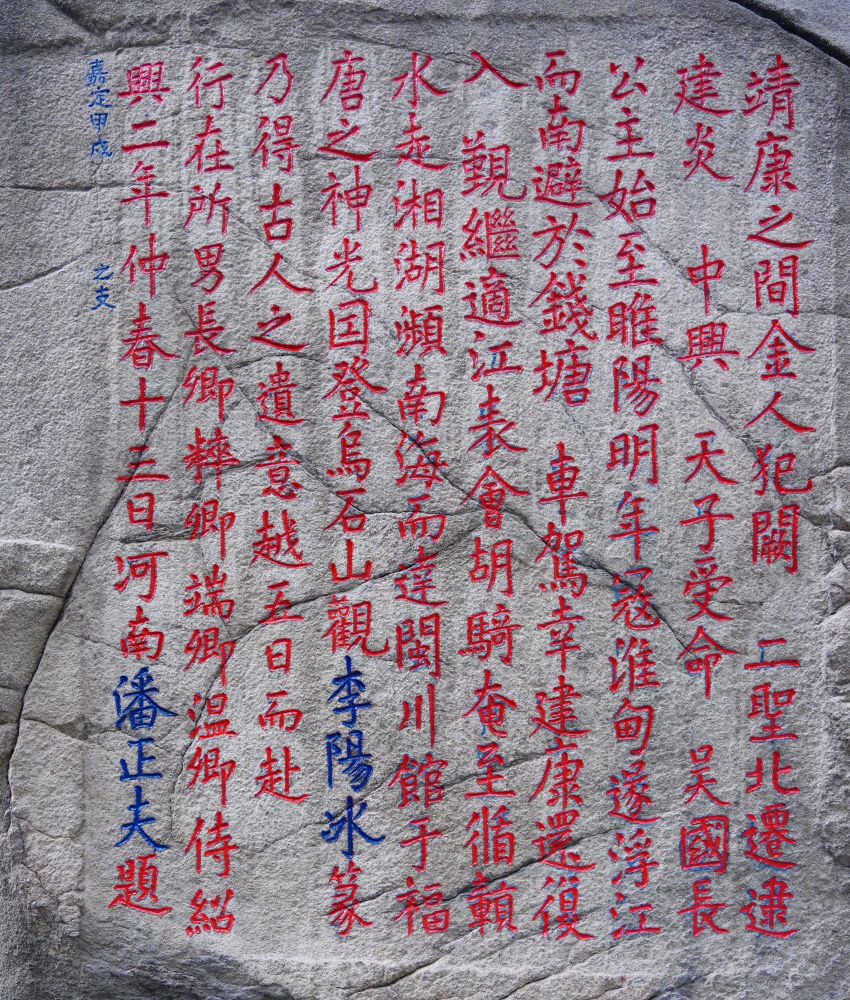 靖康之間金人犯闕 二聖北遷逮
建炎 中興 天子受命 吴國長
公主始至睢陽明年冦淮甸遂浮江
而南避於錢塘 車駕幸建康還復
入 覲繼適江表會胡騎奄至循贛
水走湘湖瀕南海而達閩川館于福
唐之神光囯登烏石山觀李陽冰篆
乃得古人之遺意越五日而赴
行在所男長卿粹卿端卿温卿侍紹
興二年仲春十三日河南潘正夫題
嘉定甲戌 之支